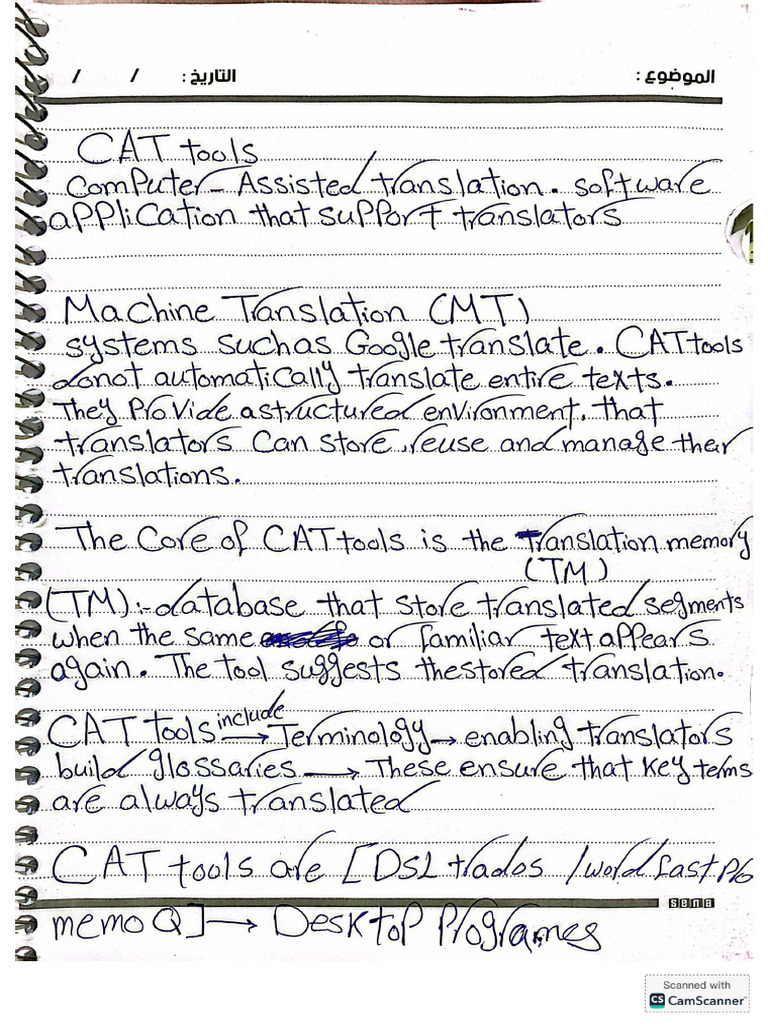 الموضوع : التاريخ : / /
CAT tools
Computer - Assisted translation. software
application that support translators
Machine Translation (MT)
systems such as Google translate. CAT tools
do not automatically translate entire texts.
They Provide a structured environment. that
translators Can store, reuse and manage their
translations.
The Core of CAT tools is the Translation memory
(TM)
(TM):- database that store translated segments
when the same or familiar text appears
again. The tool suggests the stored translation.
CAT tools include → Terminology → enabling translators
build glossaries → These ensure that key terms
are always translated
CAT tools are [DSL trados / wordfast Pro
sana
memo Q] → Desktop Programes
Scanned with
CS CamScanner